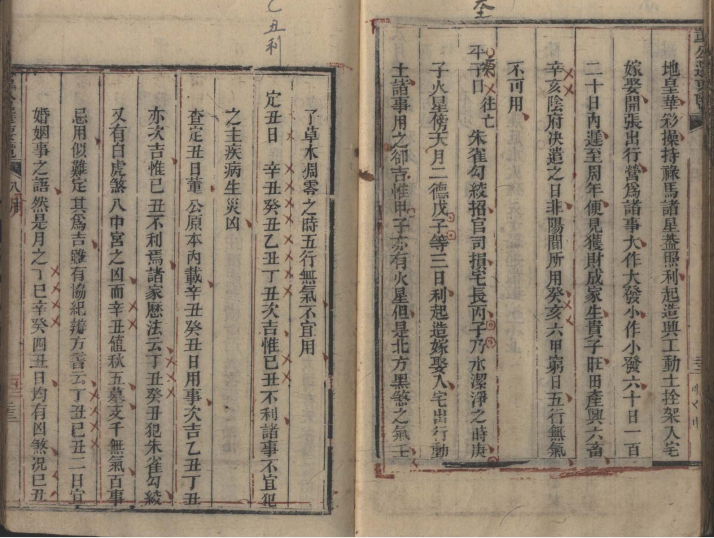 地皇華彩操持祿馬諸星蓋照利起造興工動土拴架入宅
嫁娶開張出行營爲諸事大作大發小作小發六十日一百
二十日內遞至周年便見獲財成家生貴子旺田產興六畜
辛亥陰府決遣之日非陽間所用癸亥六甲窮日五行無氣
不可用
平子日 往亡 朱雀勾絞招官司損宅長丙子乃水潔淨之時庚
子火星傍天月二德戊子等三日利起造嫁娶入宅出行動
土諸事用之卻吉惟甲子亦有火星但是北方黑煞之氣壬
子草木凋零之時五行無氣不宜用
定丑日 辛丑癸丑乙丑丁丑次吉惟己丑不利諸事不宜犯
之主疾病生災凶
查定丑日董公原本內載辛丑癸丑日用事次吉乙丑丁丑
亦次吉惟己丑不利焉諸家曆法云丁丑癸丑犯朱雀勾絞
又有白虎煞入中宮之凶而辛丑值秋五墓支干無氣百事
忌用似難定其爲吉雖有協紀辨方書云丁丑己丑二日宜
婚姻事之語然是月之丁巳辛癸四丑日均有凶煞況己丑
乙丑利